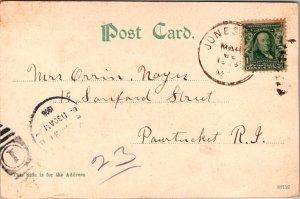 Post Card.
JONES
MAR
Mrs Orrin. Noyes
18 Sanford Street
Pawtucket R.I.
1
23
This Side is for the Address